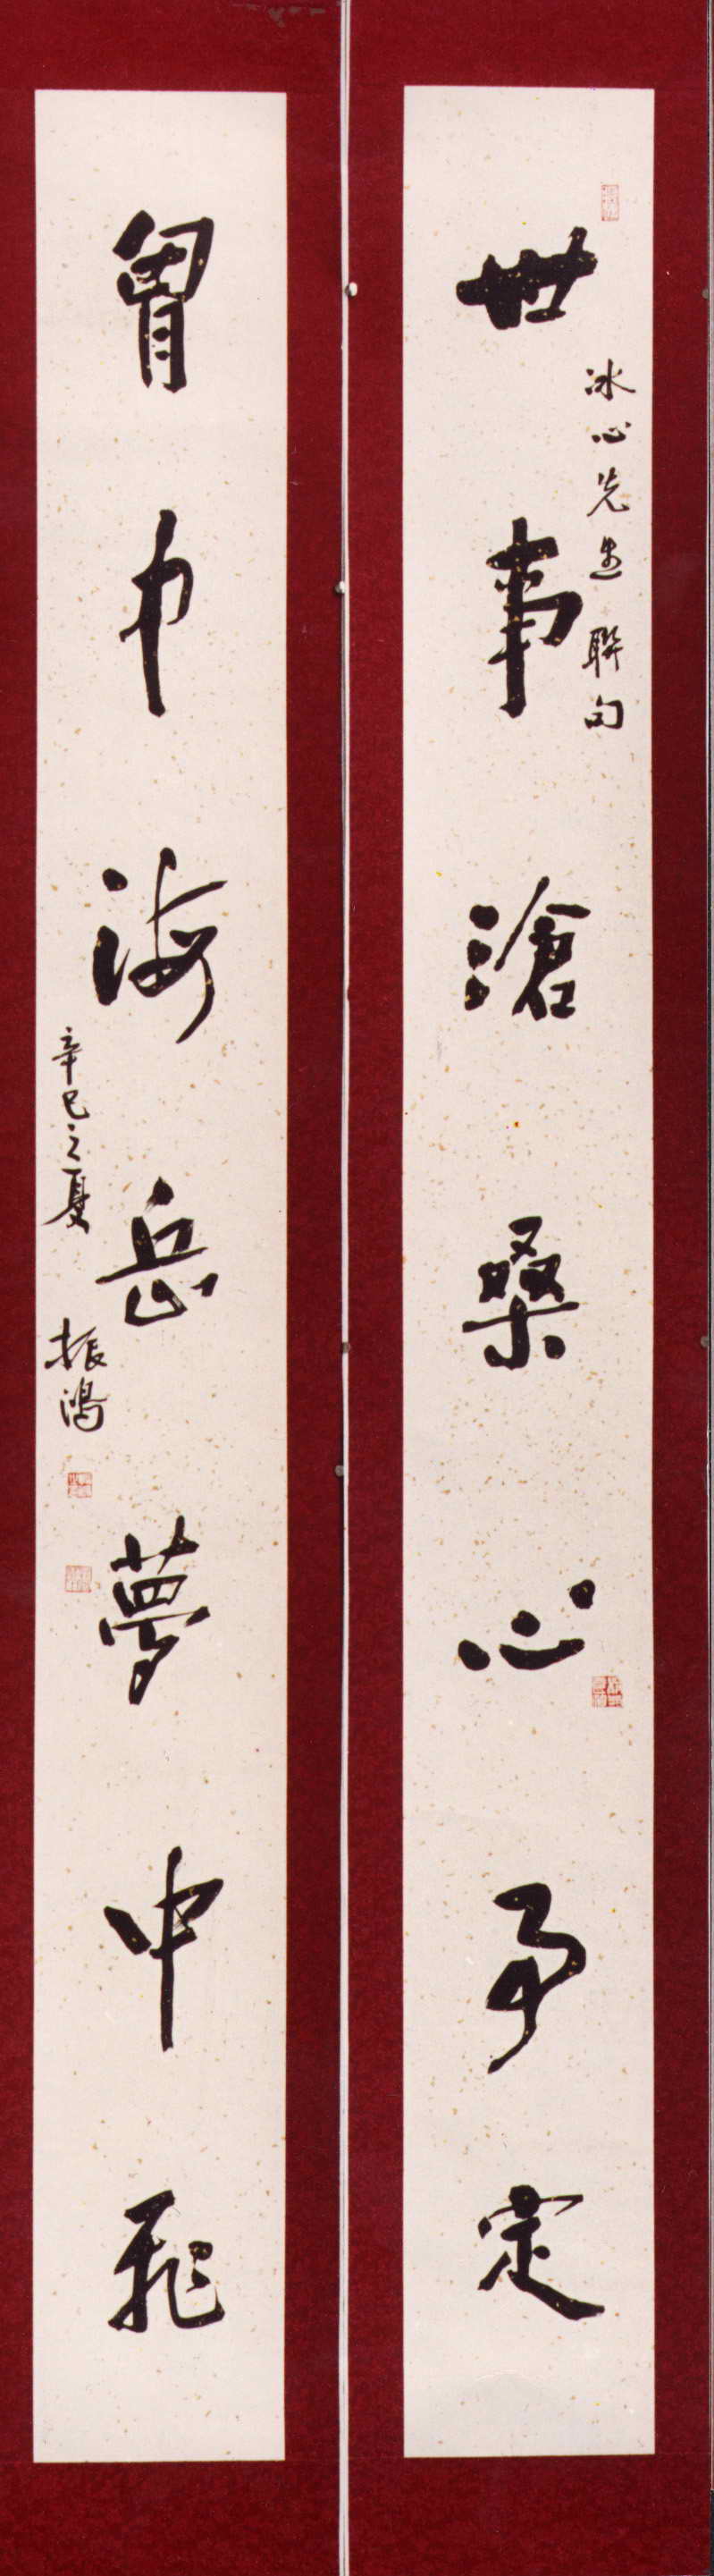 冰心先生聯句
世事滄桑心事定
胷中海岳夢中飛
辛巳之夏
振鴻